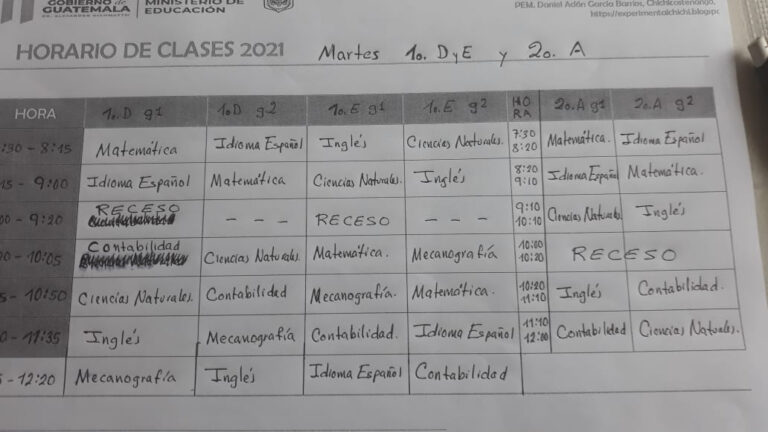 GOBIERNO de
GUATEMALA
MINISTERIO DE
EDUCACIÓN
PEM. Daniel Adán García Barrios, Chichicastenango,
https://experimentalchichi.blogspot
HORARIO DE CLASES 2021 Martes 1o. D y E y 2o. A
HORA 1o. D g1 1o. D g2 1o. E g1 1o. E g2 HORA 2o. A g1 2o. A g2
:30 - 8:15 Matemática Idioma Español Inglés Ciencias Naturales. 7:30 8:20 Matemática. Idioma Español
15 - 9:00 Idioma Español Matemática Ciencias Naturales. Inglés 8:20 9:10 Idioma Español Matemática.
00 - 9:20 RECESO - - - RECESO - - - 9:10 10:10 Ciencias Naturales. Inglés
- 10:05 Contabilidad Ciencias Naturales. Matemática. Mecanografía 10:00 10:20 RECESO
5 - 10:50 Ciencias Naturales. Contabilidad Mecanografía. Matemática. 10:20 11:10 Inglés Contabilidad.
0 - 11:35 Inglés Mecanografía Contabilidad. Idioma Español 11:10 12:00 Contabilidad Ciencias Naturales.
- 12:20 Mecanografía Inglés Idioma Español Contabilidad